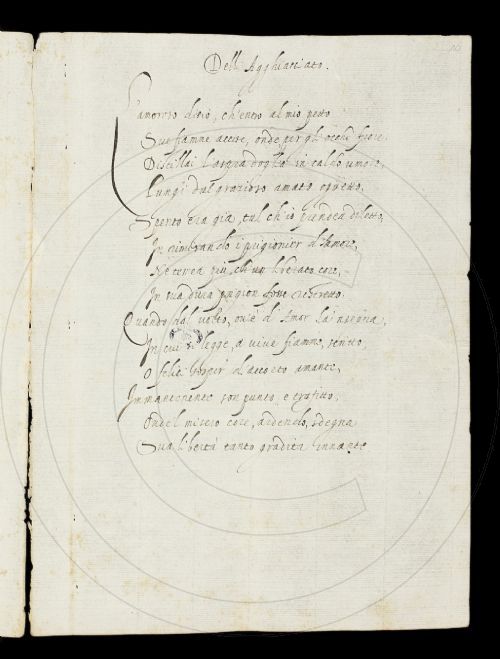 10
Dell'Agghiacciato.
L'amoroso desio, ch'entro al mio petto
Sue fiamme accese, onde per gl'occhi fuore
Distillai l'aspra doglia in caldo umore,
Lungi dal grazioso amato oggetto,
Spento era già, tal ch'io prendea diletto,
In rimirando i prigionier d'Amore,
Ne temea più, ch'un liberato core,
In sua dura prigion fosse ristretto.
Quando dal volto, ov'è d'Amor la insegna,
In cui si legge, a vive fiamme, scritto
O felice d'accorto amante,
Immantenente son punto, e trafitto,
Onde'l misero core, ardendo, sdegna
Sua libertà tanto gradita innante